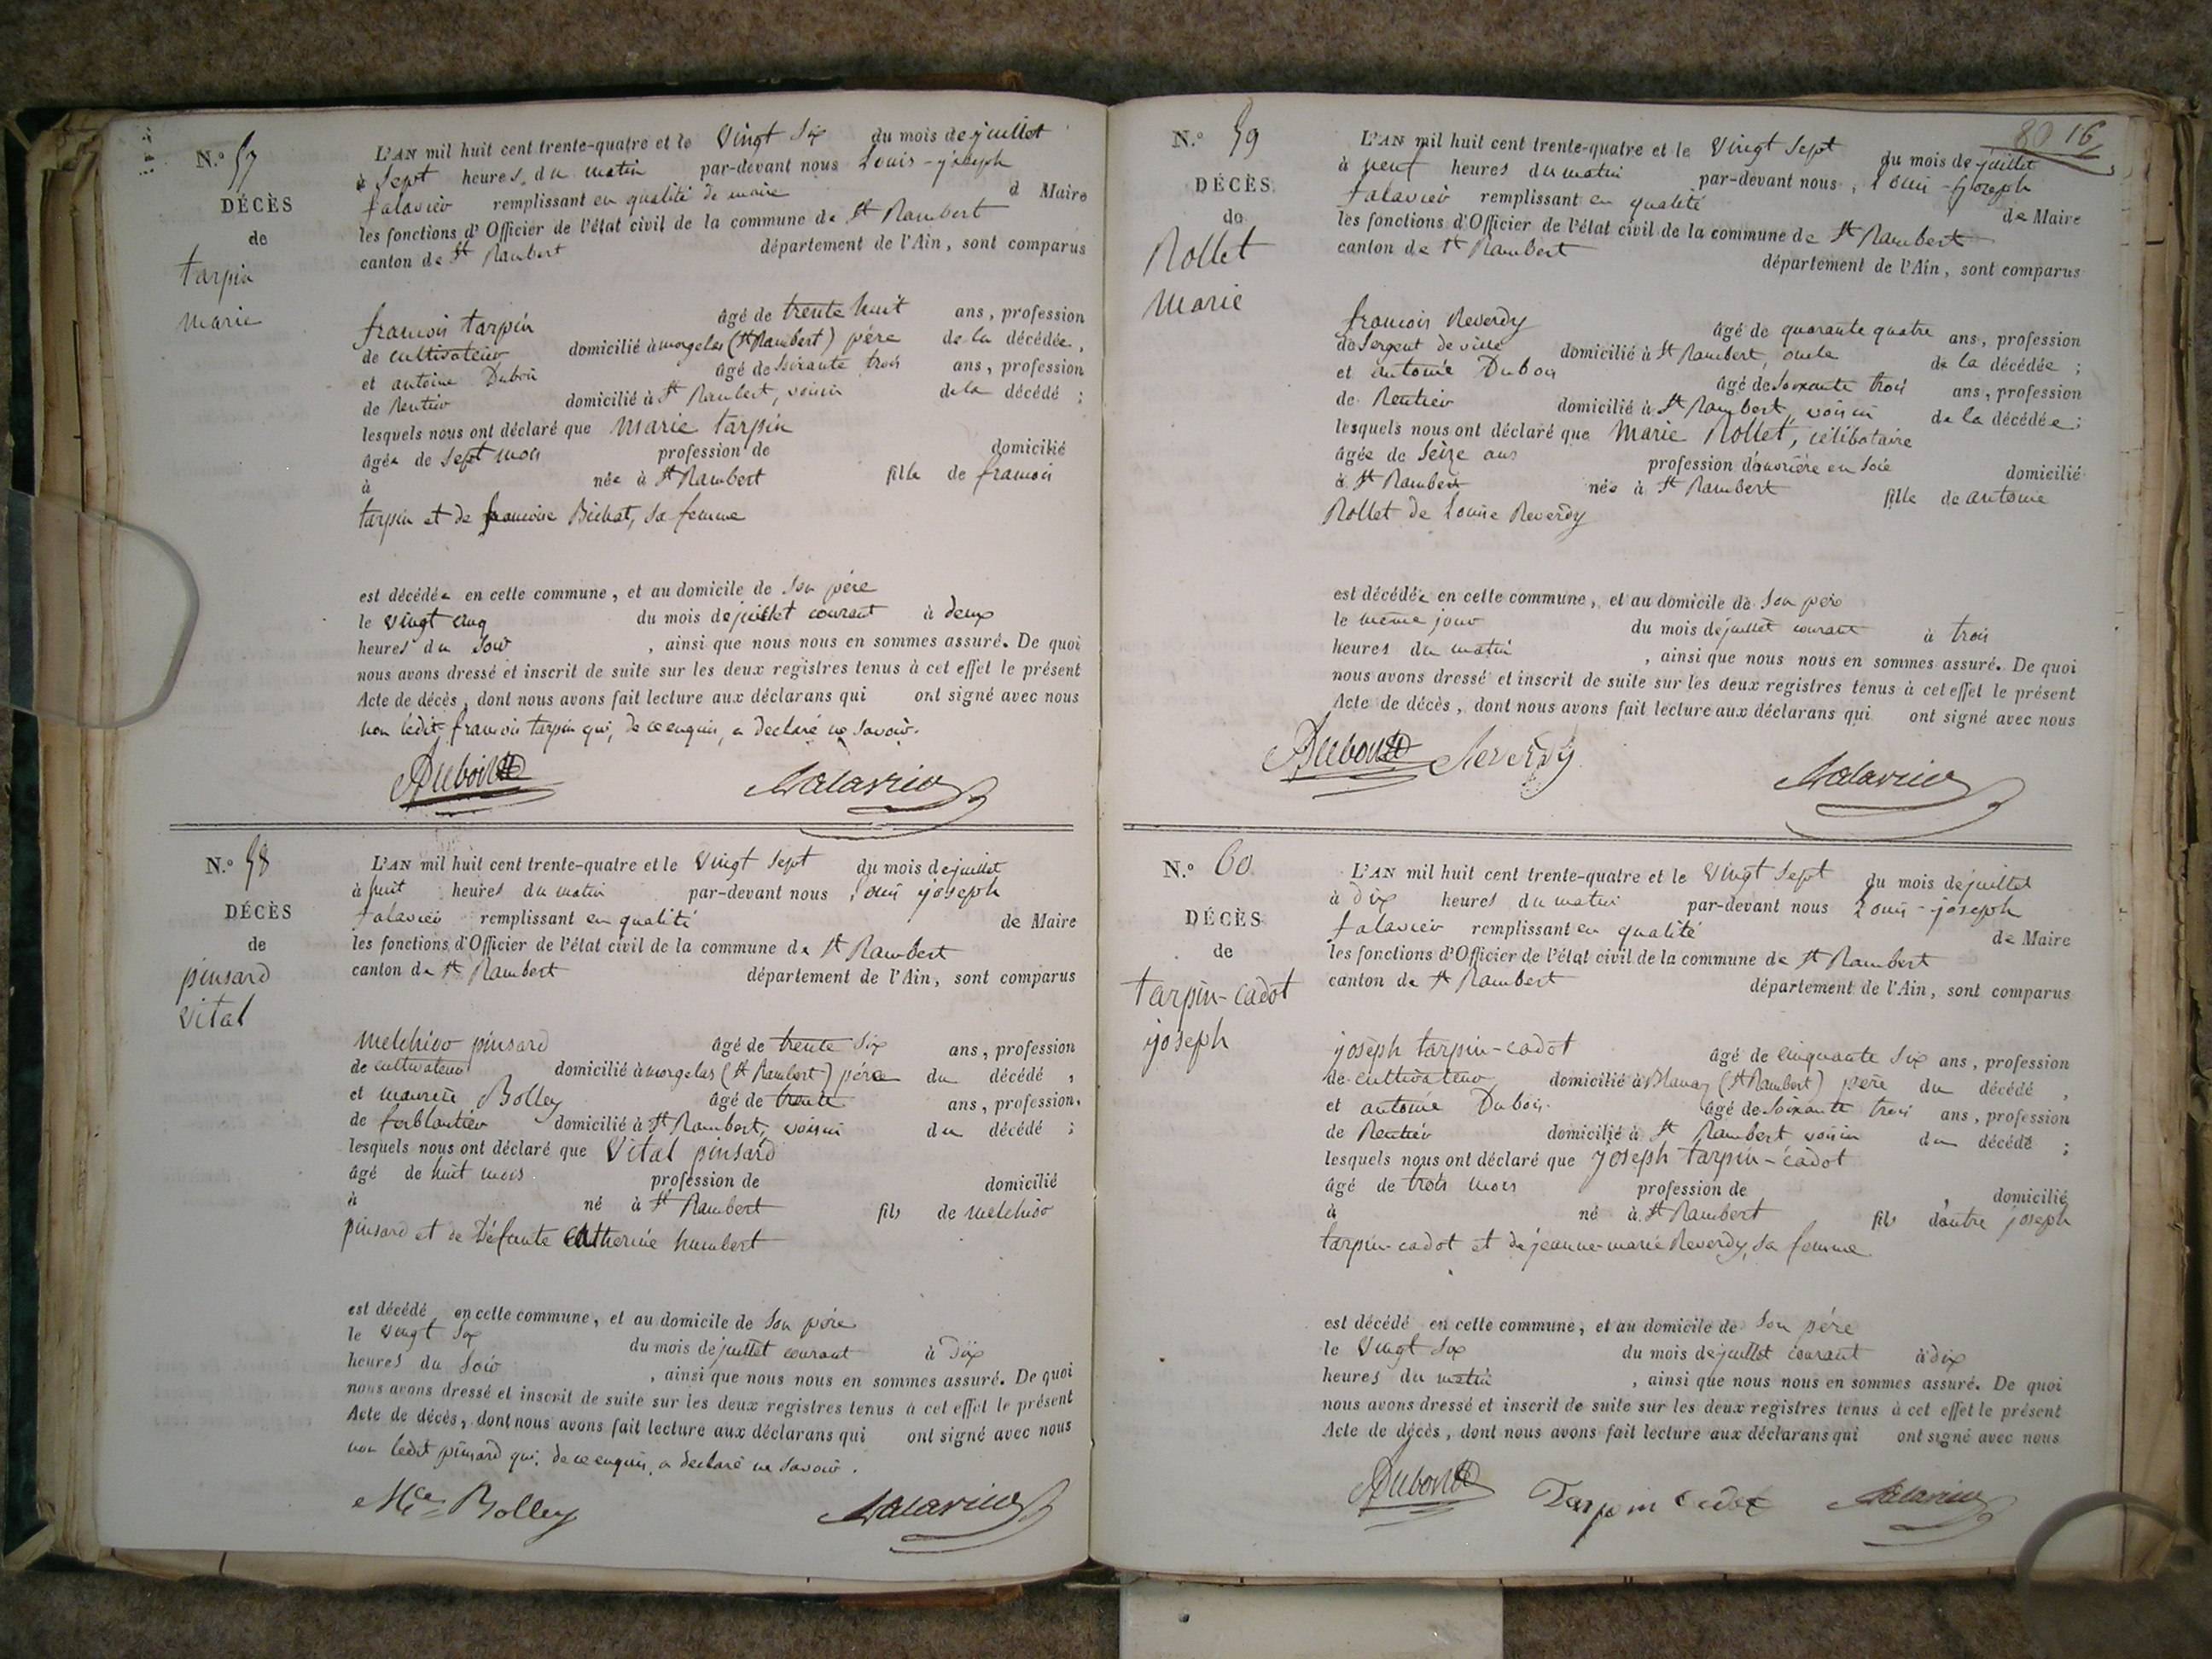 N.° 57
DÉCÈS
de
tarpin
marie
L'AN mil huit cent trente-quatre et le vingt six du mois de juillet
à sept heures du matin par-devant nous Louis-joseph
falavier remplissant en qualité de maire d Maire
les fonctions d'Officier de l'état civil de la commune de St Rambert
canton de St Rambert département de l'Ain, sont comparus
francois tarpin âgé de trente huit ans, profession
de cultivateur domicilié à morgelas (St Rambert) père de la décédée,
et antoine Dubois âgé de soixante trois ans, profession
de Rentier domicilié à St Rambert, voisin de la décédé ;
lesquels nous ont déclaré que Marie tarpin
âgée de sept mois profession de domicilié
à née à St Rambert fille de francois
tarpin et de francoise Bichat, sa femme
est décédée en cette commune, et au domicile de son père
le vingt cinq du mois de juillet courant à deux
heures du soir , ainsi que nous nous en sommes assuré. De quoi
nous avons dressé et inscrit de suite sur les deux registres tenus à cet effet le présent
Acte de décès, dont nous avons fait lecture aux déclarans qui ont signé avec nous
non ledit francois tarpin qui, de ce enquis, a declaré ne savoir.
Dubois falavier
N.° 58
DÉCÈS
de
pinsard
Vital
L'AN mil huit cent trente-quatre et le vingt sept du mois de juillet
à huit heures du matin par-devant nous Louis joseph
falavier remplissant en qualité de Maire
les fonctions d'Officier de l'état civil de la commune de St Rambert
canton de St Rambert département de l'Ain, sont comparus
Melchior pinsard âgé de trente six ans, profession
de cultivateur domicilié à morgelas (St Rambert) père du décédé ,
et maurice Bolley âgé de trente ans, profession
de ferblantier domicilié à St Rambert, voisin du décédé ;
lesquels nous ont déclaré que Vital pinsard
âgé de huit mois profession de domicilié
à né à St Rambert fils de melchior
pinsard et de défunte Catherine humbert
est décédé en cette commune, et au domicile de son père
le vingt six du mois de juillet courant à dix
heures du soir , ainsi que nous nous en sommes assuré. De quoi
nous avons dressé et inscrit de suite sur les deux registres tenus à cet effet le présent
Acte de décès, dont nous avons fait lecture aux déclarans qui ont signé avec nous
non ledit pinsard qui, de ce enquis, a declaré ne savoir.
Mce Bolley falavier
80 16
N.° 59
DÉCÈS
de
Rollet
Marie
L'AN mil huit cent trente-quatre et le vingt sept du mois de juillet
à neuf heures du matin par-devant nous, Louis-Joseph
falavier remplissant en qualité de Maire
les fonctions d'Officier de l'état civil de la commune de St Rambert
canton de St Rambert département de l'Ain, sont comparus
francois Reverdy âgé de quarante quatre ans, profession
de Sergent de ville domicilié à St Rambert, oncle de la décédée ;
et antoine Dubois âgé de soixante trois ans, profession
de Rentier domicilié à St Rambert, voisin de la décédée ;
lesquels nous ont déclaré que Marie Rollet, célibataire
âgée de seize ans profession d'ouvrière en soie domicilié
à St Rambert née à St Rambert fille de antoine
Rollet de Louise Reverdy
est décédée en cette commune, et au domicile de son père
le même jour du mois de juillet courant à trois
heures du matin , ainsi que nous nous en sommes assuré. De quoi
nous avons dressé et inscrit de suite sur les deux registres tenus à cet effet le présent
Acte de décès, dont nous avons fait lecture aux déclarans qui ont signé avec nous
Dubois Reverdy falavier
N.° 60
DÉCÈS
de
tarpin-cadot
joseph
L'AN mil huit cent trente-quatre et le vingt sept du mois de juillet
à dix heures du matin par-devant nous Louis-joseph
falavier remplissant en qualité de Maire
les fonctions d'Officier de l'état civil de la commune de St Rambert
canton de St Rambert département de l'Ain, sont comparus
joseph tarpin-cadot âgé de cinquante six ans, profession
de cultivateur domicilié à Blanaz (St Rambert) père du décédé ,
et antoine Dubois âgé de soixante trois ans, profession
de Rentier domicilié à St Rambert voisin du décédé ;
lesquels nous ont déclaré que Joseph tarpin-cadot
âgé de trois mois profession de , domicilié
à né à St Rambert fils d'autre joseph
tarpin-cadot et de jeanne-marie Reverdy, sa femme
est décédé en cette commune, et au domicile de son père
le vingt six du mois de juillet courant à dix
heures du matin , ainsi que nous nous en sommes assuré. De quoi
nous avons dressé et inscrit de suite sur les deux registres tenus à cet effet le présent
Acte de décès, dont nous avons fait lecture aux déclarans qui ont signé avec nous
Dubois Tarpin Cadot falavier